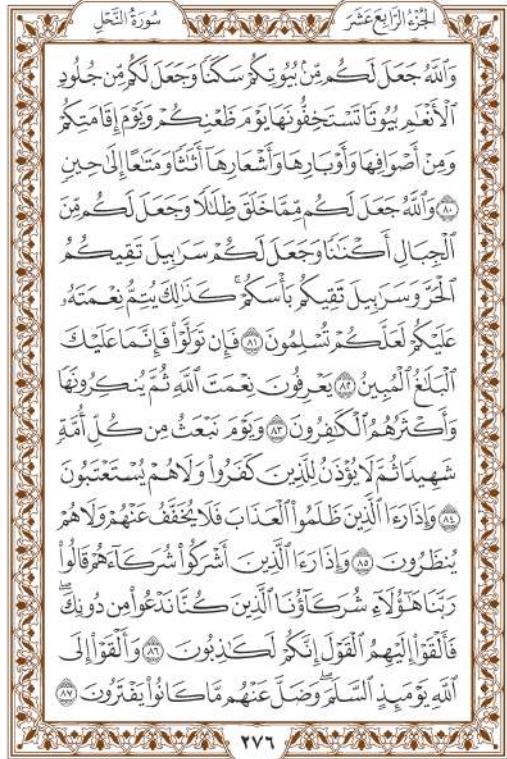 الجُزْءُ الرَّابِعَ عَشَرَ
سُورَةُ النَّحْلِ
وَٱللَّهُ جَعَلَ لَكُم مِّنۢ بُيُوتِكُمْ سَكَنٗا وَجَعَلَ لَكُم مِّن جُلُودِ
ٱلْأَنْعَٰمِ بُيُوتٗا تَسْتَخِفُّونَهَا يَوْمَ ظَعْنِكُمْ وَيَوْمَ إِقَامَتِكُمْ
وَمِنْ أَصْوَافِهَا وَأَوْبَارِهَا وَأَشْعَارِهَآ أَثَٰثٗا وَمَتَٰعًا إِلَىٰ حِينٖ
٨٠ وَٱللَّهُ جَعَلَ لَكُم مِّمَّا خَلَقَ ظِلَٰلٗا وَجَعَلَ لَكُم مِّنَ
ٱلْجِبَالِ أَكْنَٰنٗا وَجَعَلَ لَكُمْ سَرَٰبِيلَ تَقِيكُمُ
ٱلْحَرَّ وَسَرَٰبِيلَ تَقِيكُم بَأْسَكُمْۚ كَذَٰلِكَ يُتِمُّ نِعْمَتَهُۥ
عَلَيْكُمْ لَعَلَّكُمْ تُسْلِمُونَ ٨١ فَإِن تَوَلَّوْاْ فَإِنَّمَا عَلَيْكَ
ٱلْبَلَٰغُ ٱلْمُبِينُ ٨٢ يَعْرِفُونَ نِعْمَتَ ٱللَّهِ ثُمَّ يُنكِرُونَهَا
وَأَكْثَرُهُمُ ٱلْكَٰفِرُونَ ٨٣ وَيَوْمَ نَبْعَثُ مِن كُلِّ أُمَّةٖ
شَهِيدٗا ثُمَّ لَا يُؤْذَنُ لِلَّذِينَ كَفَرُواْ وَلَا هُمْ يُسْتَعْتَبُونَ
٨٤ وَإِذَا رَءَا ٱلَّذِينَ ظَلَمُواْ ٱلْعَذَابَ فَلَا يُخَفَّفُ عَنْهُمْ وَلَا هُمْ
يُنظَرُونَ ٨٥ وَإِذَا رَءَا ٱلَّذِينَ أَشْرَكُواْ شُرَكَآءَهُمْ قَالُواْ
رَبَّنَا هَٰٓؤُلَآءِ شُرَكَآؤُنَا ٱلَّذِينَ كُنَّا نَدْعُواْ مِن دُونِكَۖ
فَأَلْقَوْاْ إِلَيْهِمُ ٱلْقَوْلَ إِنَّكُمْ لَكَٰذِبُونَ ٨٦ وَأَلْقَوْاْ إِلَى
ٱللَّهِ يَوْمَئِذٍ ٱلسَّلَمَۖ وَضَلَّ عَنْهُم مَّا كَانُواْ يَفْتَرُونَ ٨٧
٢٧٦